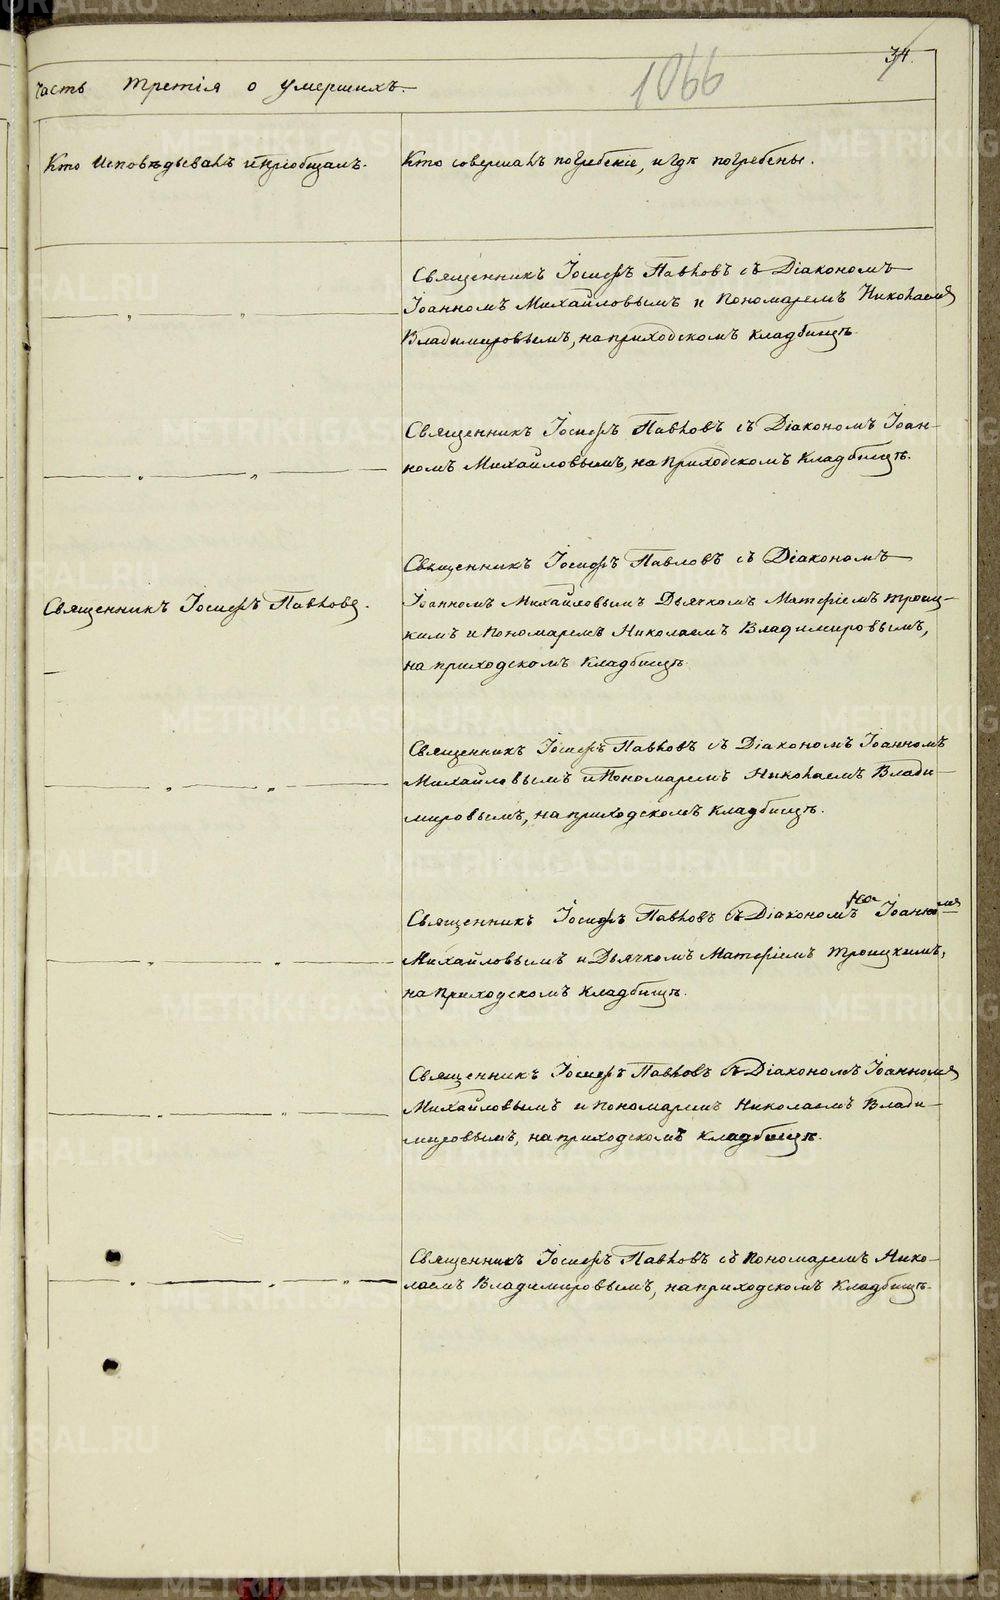 34.
1066
Часть третія о умершихъ.
Кто исповѣдывалъ и пріобщалъ.
Кто совершалъ погребеніе, и гдѣ погребены.
Священникъ Іосифъ Павловъ съ Діакономъ
Іоанномъ Михайловымъ и Пономаремъ Николаемъ
Владимировымъ, на приходскомъ кладбищѣ.
Священникъ Іосифъ Павловъ съ Діакономъ Іоан-
номъ Михайловымъ, на приходскомъ кладбищѣ.
Священникъ Іосифъ Павловъ.
Священникъ Іосифъ Павловъ съ Діакономъ
Іоанномъ Михайловымъ Дьячкомъ Матфіемъ Троиц-
кимъ и Пономаремъ Николаемъ Владимировымъ,
на приходскомъ кладбищѣ.
Священникъ Іосифъ Павловъ съ Діакономъ Іоанномъ
Михайловымъ и Пономаремъ Николаемъ Влади-
мировымъ, на приходскомъ кладбищѣ.
Священникъ Іосифъ Павловъ съ Діакономъ Іоанномъ
Михайловымъ и Дьячкомъ Матфіемъ Троицкимъ,
на приходскомъ кладбищѣ.
Священникъ Іосифъ Павловъ съ Діакономъ Іоанномъ
Михайловымъ и Пономаремъ Николаемъ Влади-
мировымъ, на приходскомъ кладбищѣ.
Священникъ Іосифъ Павловъ съ Пономаремъ Нико-
лаемъ Владимировымъ, на приходскомъ кладбищѣ.
METRIKI.GASO-URAL.RU